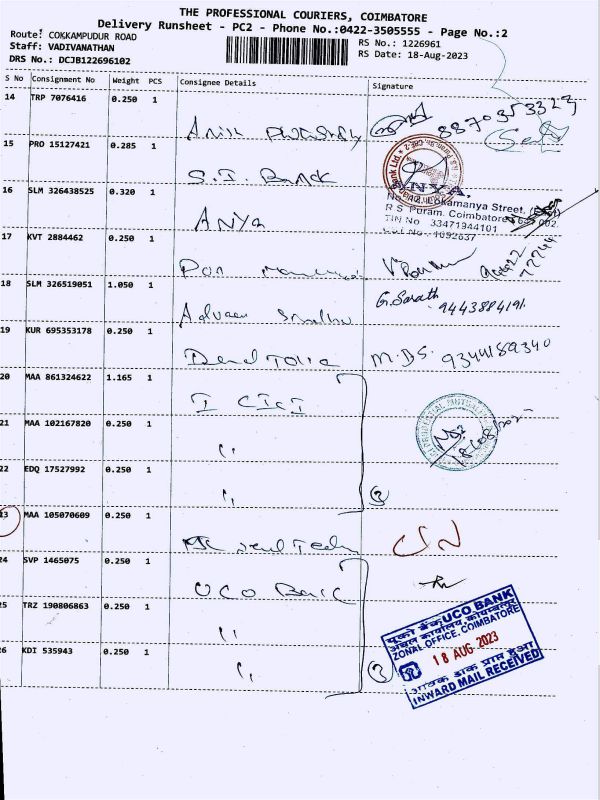 THE PROFESSIONAL COURIERS, COIMBATORE
Delivery Runsheet - PC2 - Phone No.:0422-3505555 - Page No.:2
Route: COKKAMPUDUR ROAD
Staff: VADIVANATHAN
DRS No.: DCJB122696102
RS No.: 1226961
RS Date: 18-Aug-2023
S No Consignment No Weight PCS Consignee Details Signature
14 TRP 7076416 0.250 1
8870353323
15 PRO 15127421 0.285 1 S.I. Bank
16 SLM 326438525 0.320 1 ANYA
ANYA.
Lokamanya Street,
R S Puram, Coimbatore
TIN No 33471944101
1092637
17 KVT 2884462 0.250 1
18 SLM 326519051 1.050 1
G. Sarath
9443884191
19 KUR 695353178 0.250 1
M.DS. 9344189340
20 MAA 861324622 1.165 1 I CICI
21 MAA 102167820 0.250 1 "
22 EDQ 17527992 0.250 1 " 3
23 MAA 105070609 0.250 1
24 SVP 1465075 0.250 1 UCO Bank
25 TRZ 190806863 0.250 1 "
26 KDI 535943 0.250 1 " 3
यूको बैंक UCO BANK
अंचल कार्यालय, कोयम्बत्तूर
ZONAL OFFICE, COIMBATORE
18 AUG 2023
आवक डाक प्राप्त हुआ
INWARD MAIL RECEIVED